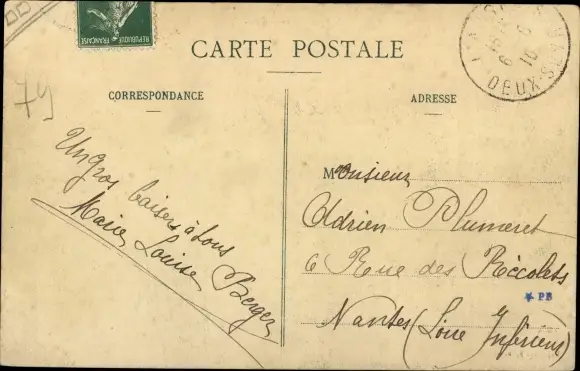 RÉPUBLIQUE FRANÇAISE
CARTE POSTALE
CORRESPONDANCE
ADRESSE
79
Un Gros baisers à tous
Marie Louise Berger
Monsieur
Adrien Plumeret
6 Rue des Récolets
Nantes (Loire Inférieure)
DEUX-SÈVRES
PB